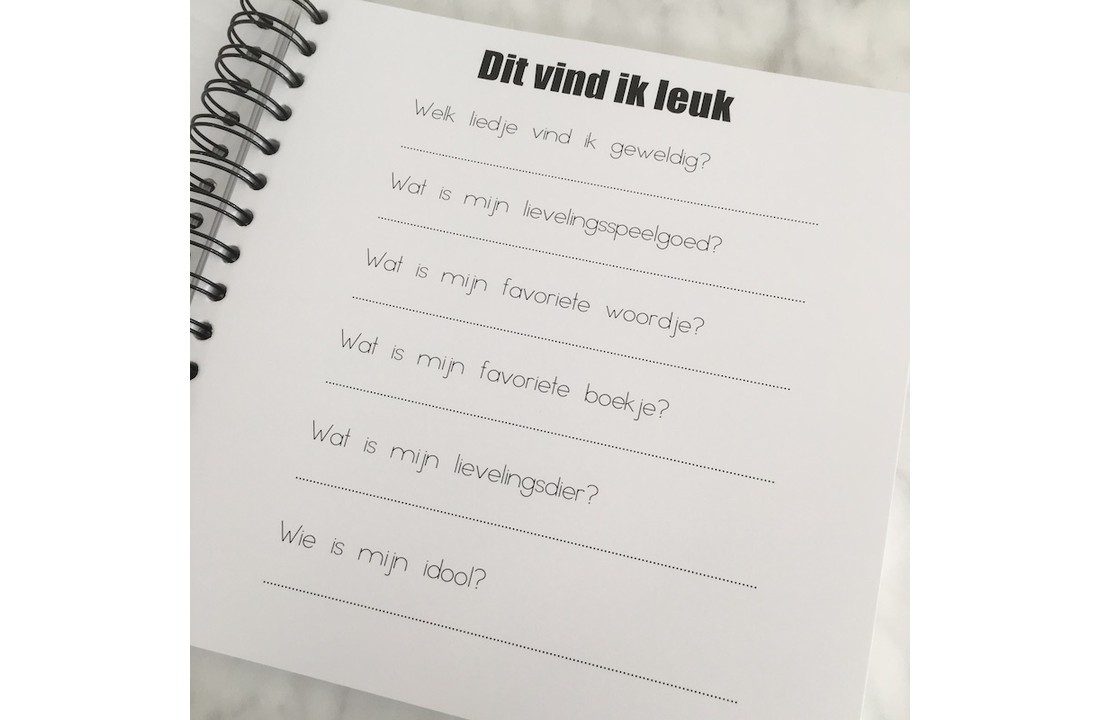 Dit vind ik leuk
Welk liedje vind ik geweldig?
Wat is mijn lievelingsspeelgoed?
Wat is mijn favoriete woordje?
Wat is mijn favoriete boekje?
Wat is mijn lievelingsdier?
Wie is mijn idool?